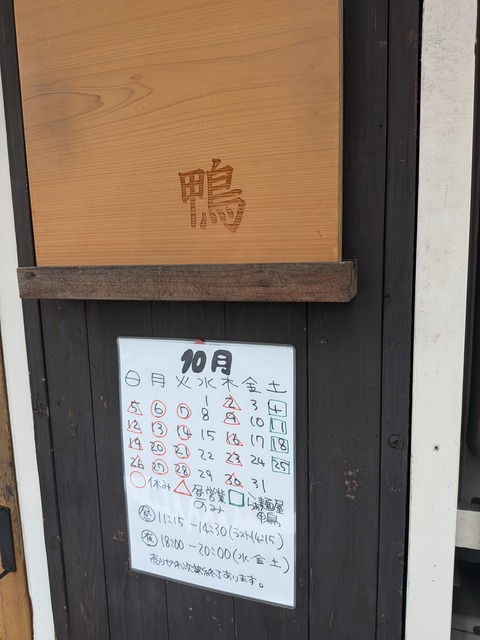 鴨
10月
日 月 火 水 木 金 土
1 2 3 4
5 6 7 8 9 10 11
12 13 14 15 16 17 18
19 20 21 22 23 24 25
26 27 28 29 30 31
休み 昼営業のみ 麺屋
昼 11:15 -14:30(ラスト14:15)
夜 18:00 -20:00(水・金・土)
売りきれ次第終了あります。